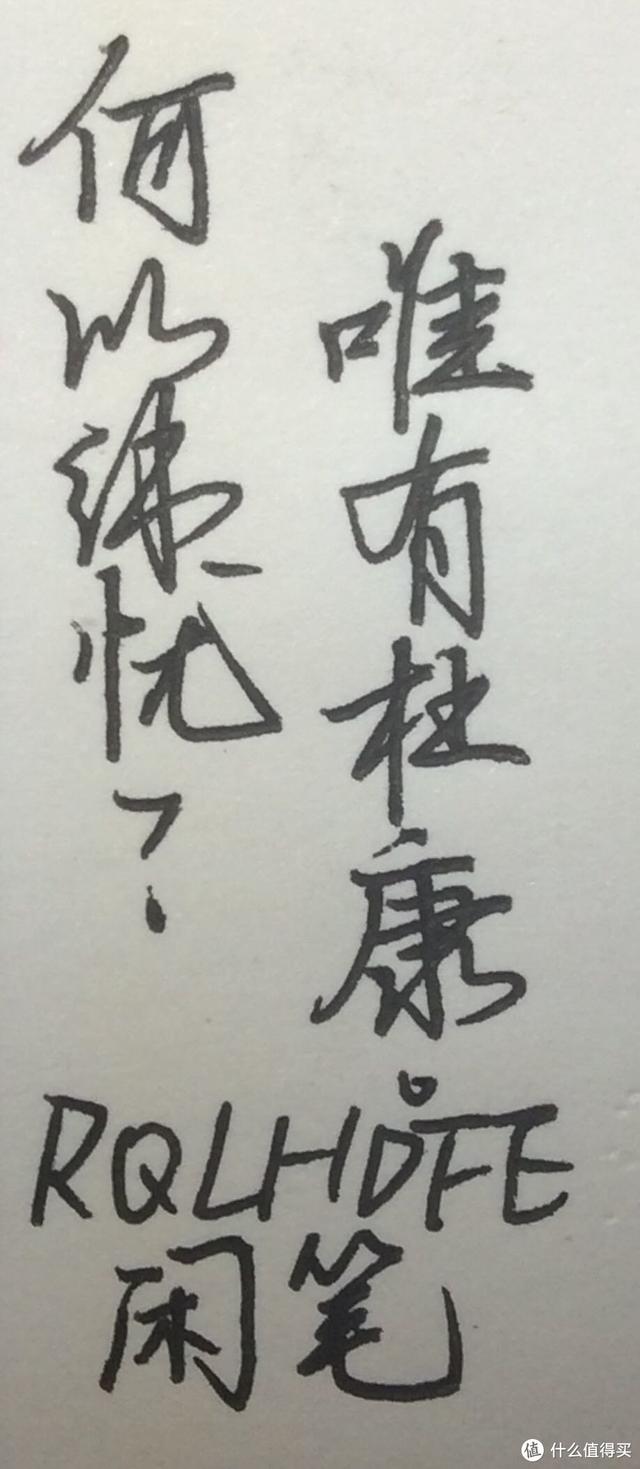 何以解忧？
唯有杜康。
RQLHDFE
闲笔
值 什么值得买